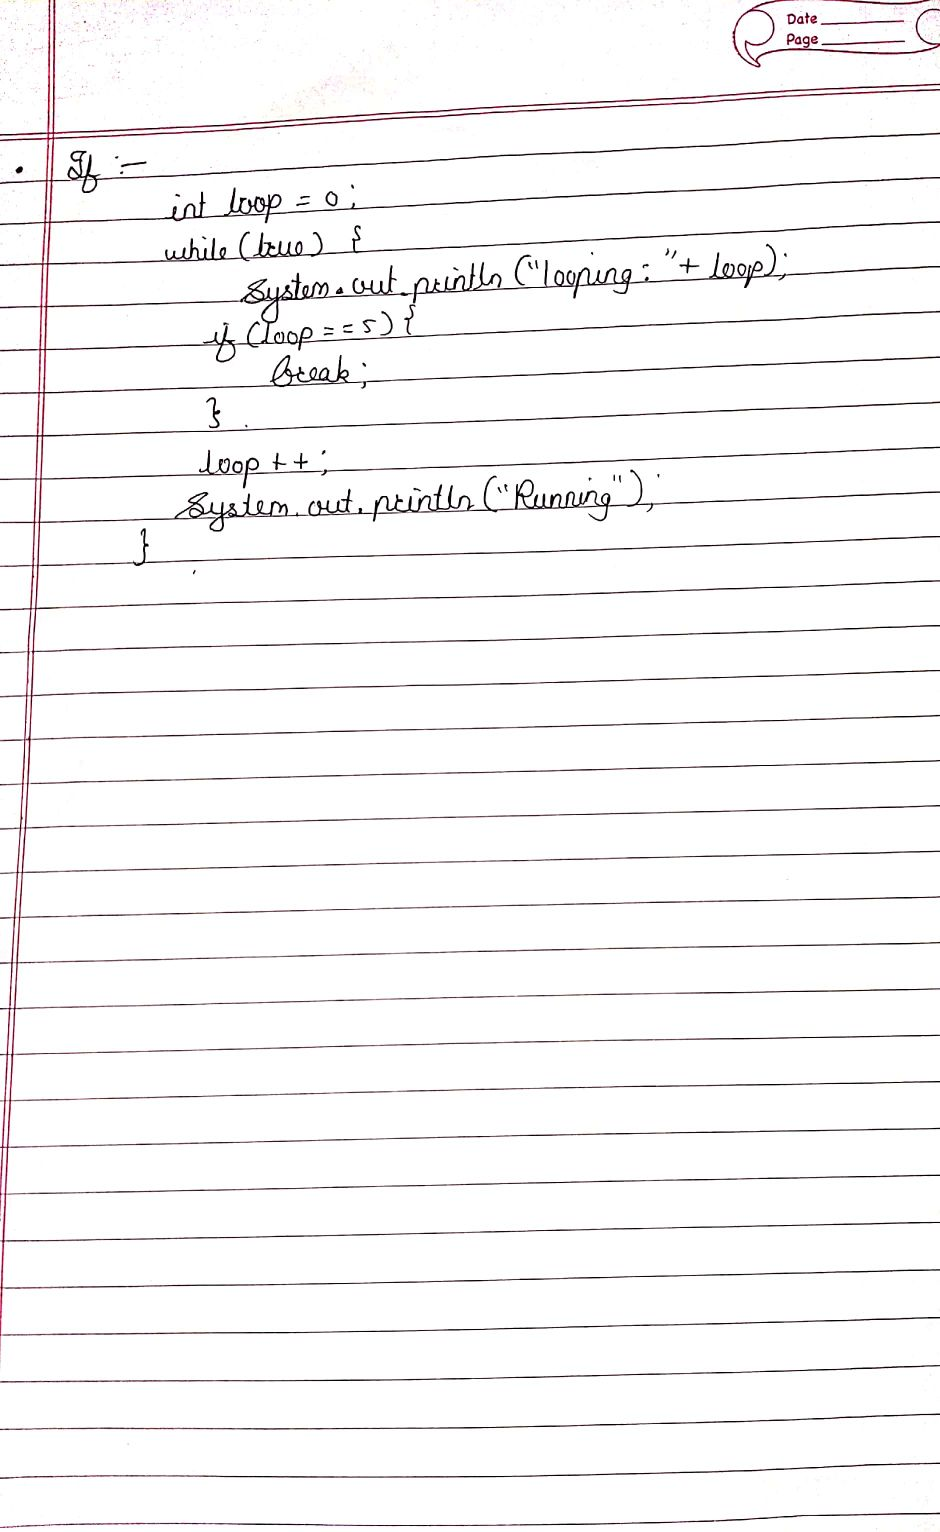 Date
Page
• If :-
int loop = 0;
while (true) {
System.out.println ("looping: "+ loop);
if (loop == 5) {
break;
}
loop ++;
System.out.println ("Running");
}